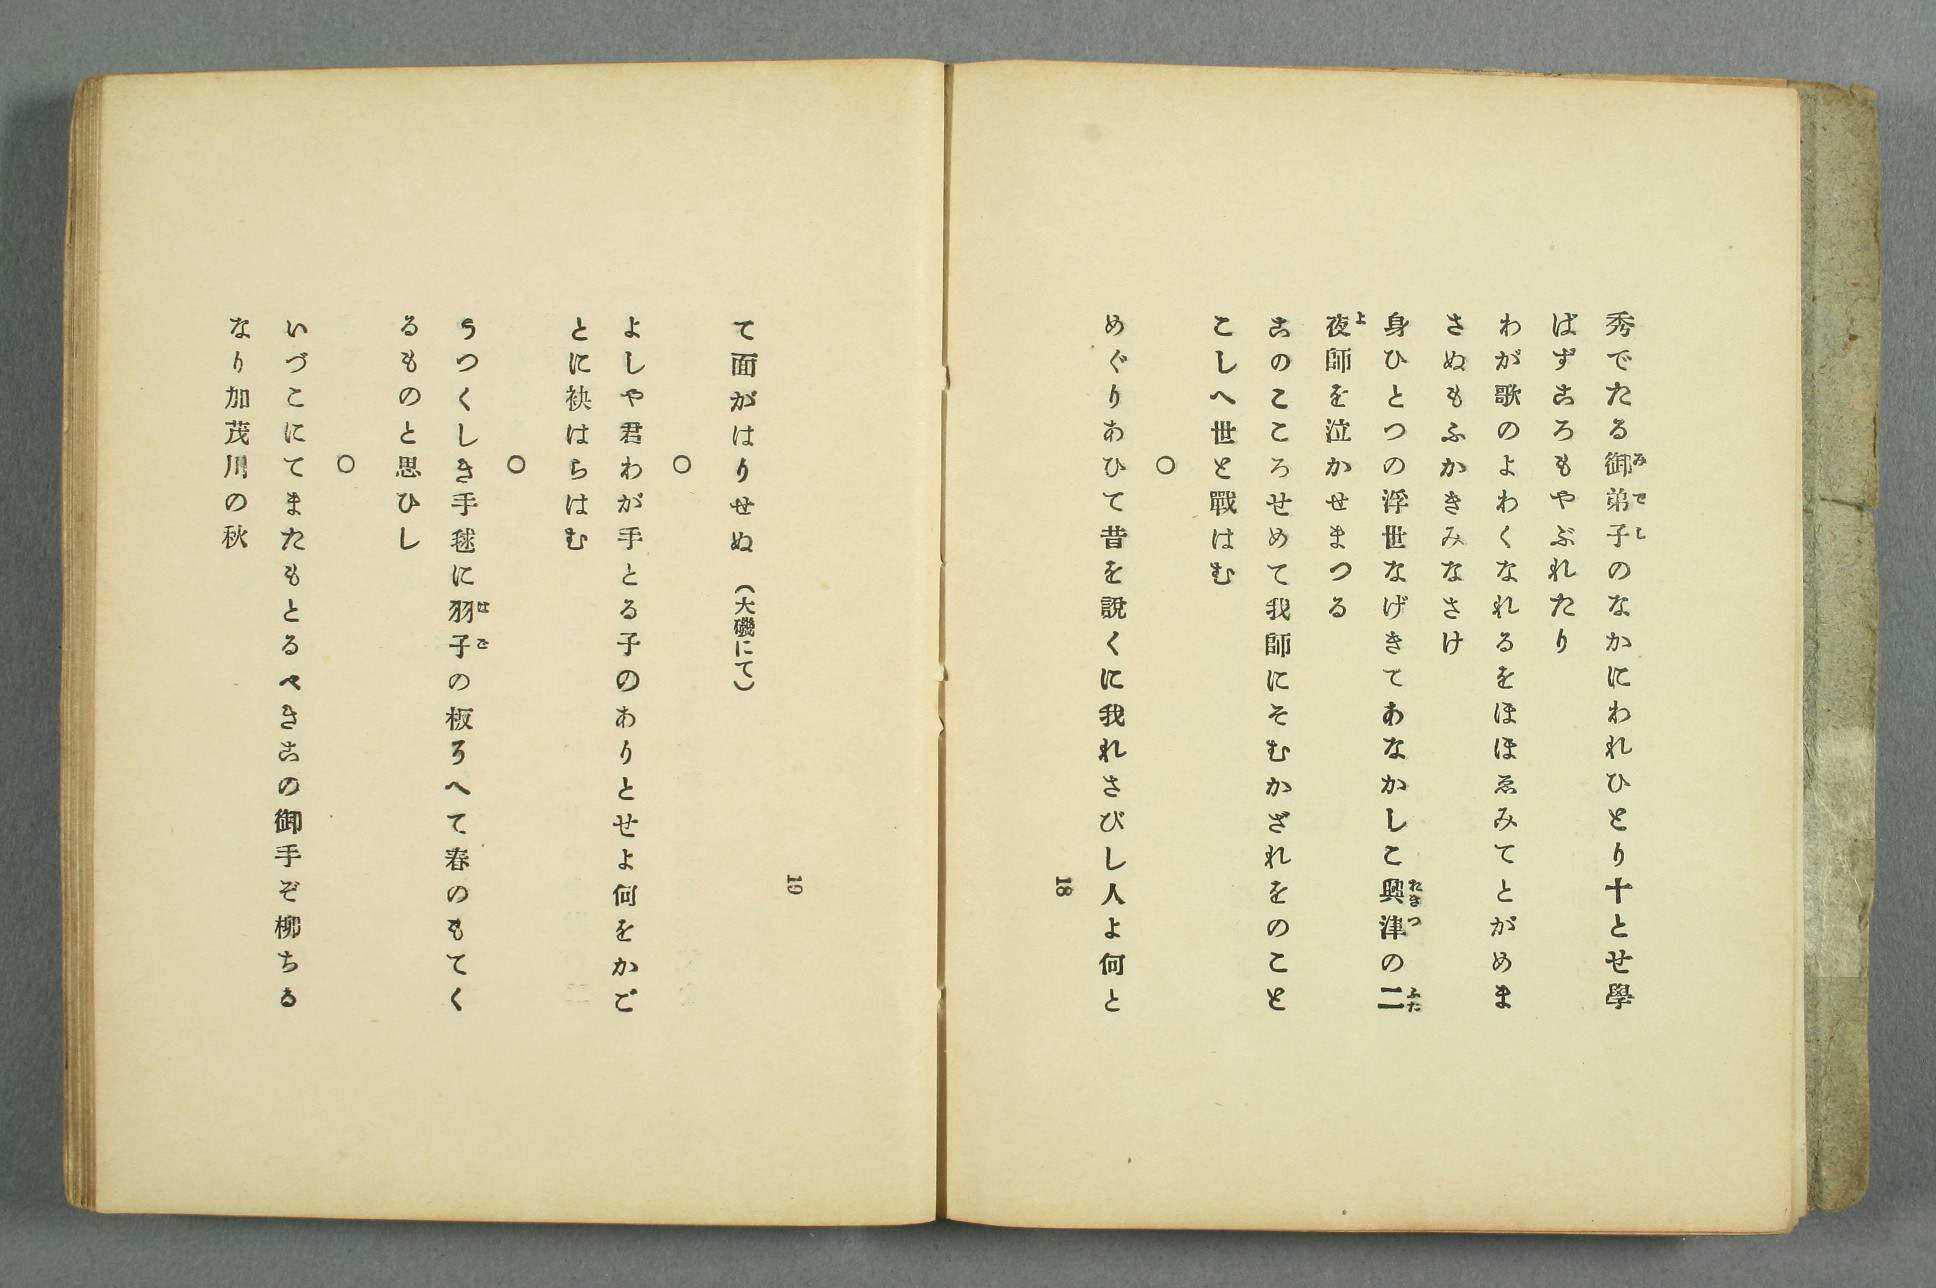 みでし
秀でたる御弟子のなかにわれひとり十とせ學
ばずころもやぶれたり
わが歌のよわくなれるをほほゑみてとがめま
さぬもふかきみなさけ
おきつ ふた
身ひとつの浮世なげきてあなかしこ興津の二
よ
夜師を泣かせまつる
このこころせめて我師にそむかざれをのこと
こしへ世と戰はむ
○
めぐりあひて昔を説くに我れさびし人よ何と
18
19
て面がはりせぬ(大磯にて)
○
よしや君わが手とる子のありとせよ何をかご
とに袂はらはむ
○
はご
うつくしき手毬に羽子の板そへて春のもてく
るものと思ひし
○
いづこにてまたもとるべきこの御手ぞ柳ちる
なり加茂川の秋